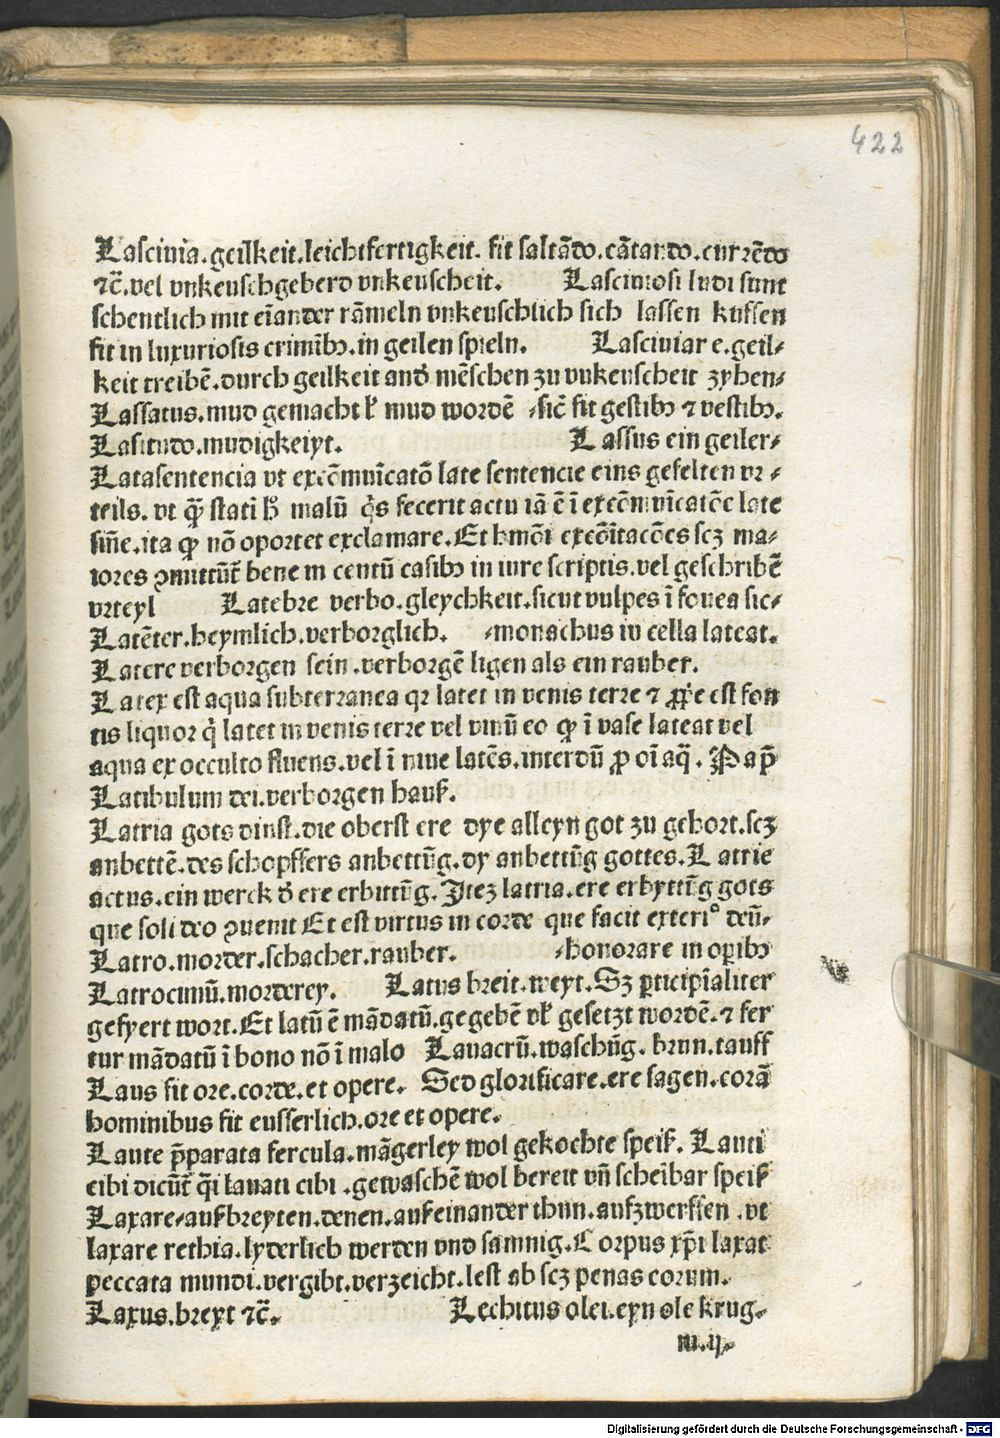 422
Lasciuia.geilkeit.leichtfertigkeit. fit saltãdo.cãtando.currẽdo
⁊c̃.vel vnkeuschgeberd vnkeuscheit. Lasciuiosi ludi sunt
schentlich mit eĩander rãmeln vnkeuschlich sich lassen kussen
fit in luxuriosis crimĩbꝰ.in geilen spieln. Lasciuiar e.geil⸗
keit treibẽ.durch geilkeit and̉ mẽschen zu vnkeuscheit zyhen⸗
Lassatus.mud gemacht mud wordẽ ⸗sic̃ fit gestibꝰ ⁊ vestibꝰ.
Lasitudo.mudigkeiyt. Lassus ein geiler⸗
Latasentencia vt excõmuĩcatõ late sentencie eins gefelten vr⸗
teils. vt statĩ malũ fecerit actu iã ẽ ĩ excõmuĩcatõe late
sñie.ita ꝙ nõ oportet exclamare.Et hmõi excõĩtacões scꝫ ma⸗
iores ꝓmittũt̃ bene in centũ casibꝰ in iure scriptis.vel geschribẽ
vrteyl Latebre verbo.gleychkeit.sicut vulpes ĩ fouea sic⸗
Latẽter.heymlich.verborglich. ⸗monachus in cella lateat.
Latere verborgen sein.verborgẽ ligen als ein rauber.
Latex est aqua subterranea qr latet in venis terre ⁊ est fon
tis liquor q̇ latet in venis terre vel vinũ eo ꝙ ĩ vase lateat vel
aqua ex occulto fluens.vel ĩ niue latẽs.interdũ ꝓ oĩ aq̃. Pap̃
Latibulum dei.verborgen hauß.
Latria gots dinst.die oberst ere dye alleyn got zu gehort.scꝫ
anbettẽ.des schopffers anbettũg.dy anbettũg gottes.Latrie
actus.ein werck d̉ ere erbittũg.Iteꝫ latria.ere erbyttũg gots
que soli deo ꝯuenit Et est virtus in corde que facit exteriꝰ deũ⸗
Latro.morder.schacher.rauber. ⸗honorare in oꝑibꝰ
Latrociniũ.morderey. Latus breit.weyt.Sꝫ ꝑticipĩaliter
gefyert wort.Et latũ ẽ mãdatũ.gegebẽ gesetzt wordẽ.⁊ fer
tur mãdatũ ĩ bono nõ ĩ malo Lauacrũ.waschũg.brun.tauff
Laus fit ore.corde.et opere. Sed glorificare.ere sagen.corã
hominibus fit eusserlich.ore et opere.
Laute p̃parata fercula.mãgerley wol gekochte speiß. Lauti
cibi dicũt̃ q̃i lauati cibi.gewaschẽ wol bereit vñ scheĩbar speiß
Laxare⸗aufbreyten.denen.aufeinander thun.aufzwerffen.vt
laxare rethia.lyderlich werden vnd samnig.Corpus xp̃i laxat
peccata mundi.vergibt.verzeicht.lest ab scꝫ penas eorum.
Laxus.breyt ⁊c̃. Lechitus olei.eyn ole krug.
m.ij.
Digitalisierung gefördert durch die Deutsche Forschungsgemeinschaft - DFG